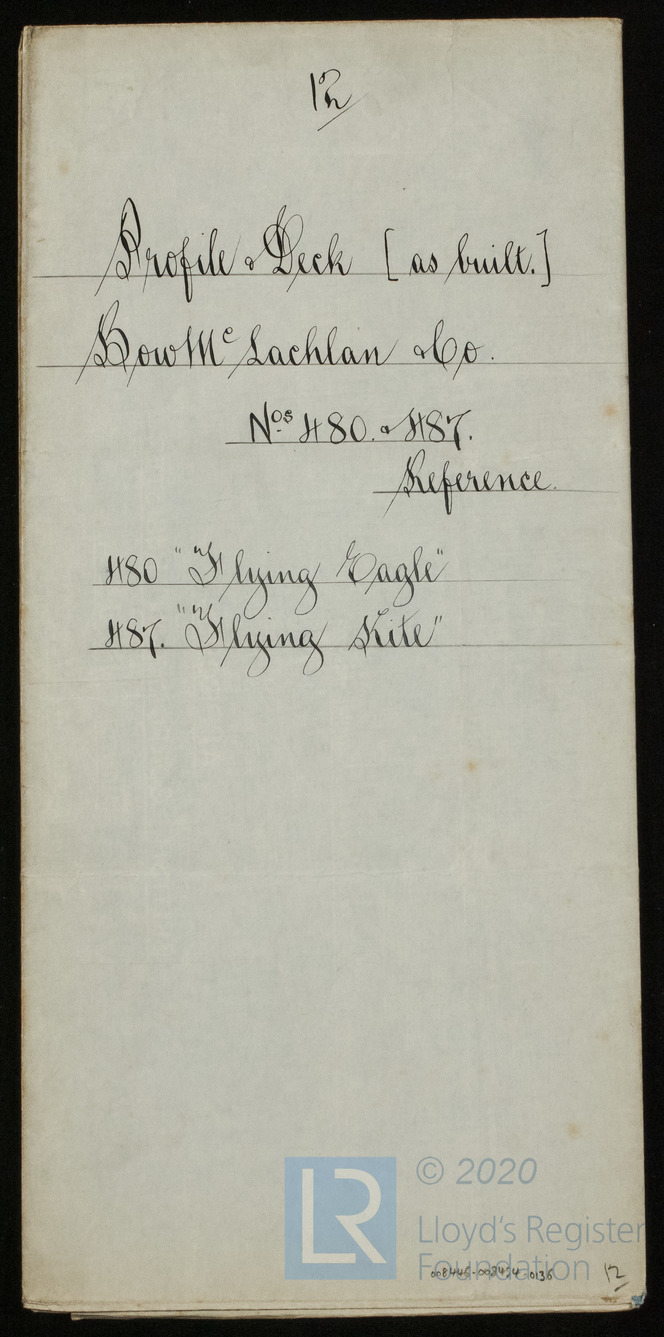 12
Profile & Deck [as built.]
Bow McLachlan & Co.
Nos 480. & 487.
Reference.
480 "Flying Eagle"
487. "Flying Kite"
LR
© 2020
Lloyd's Register
Foundation
12